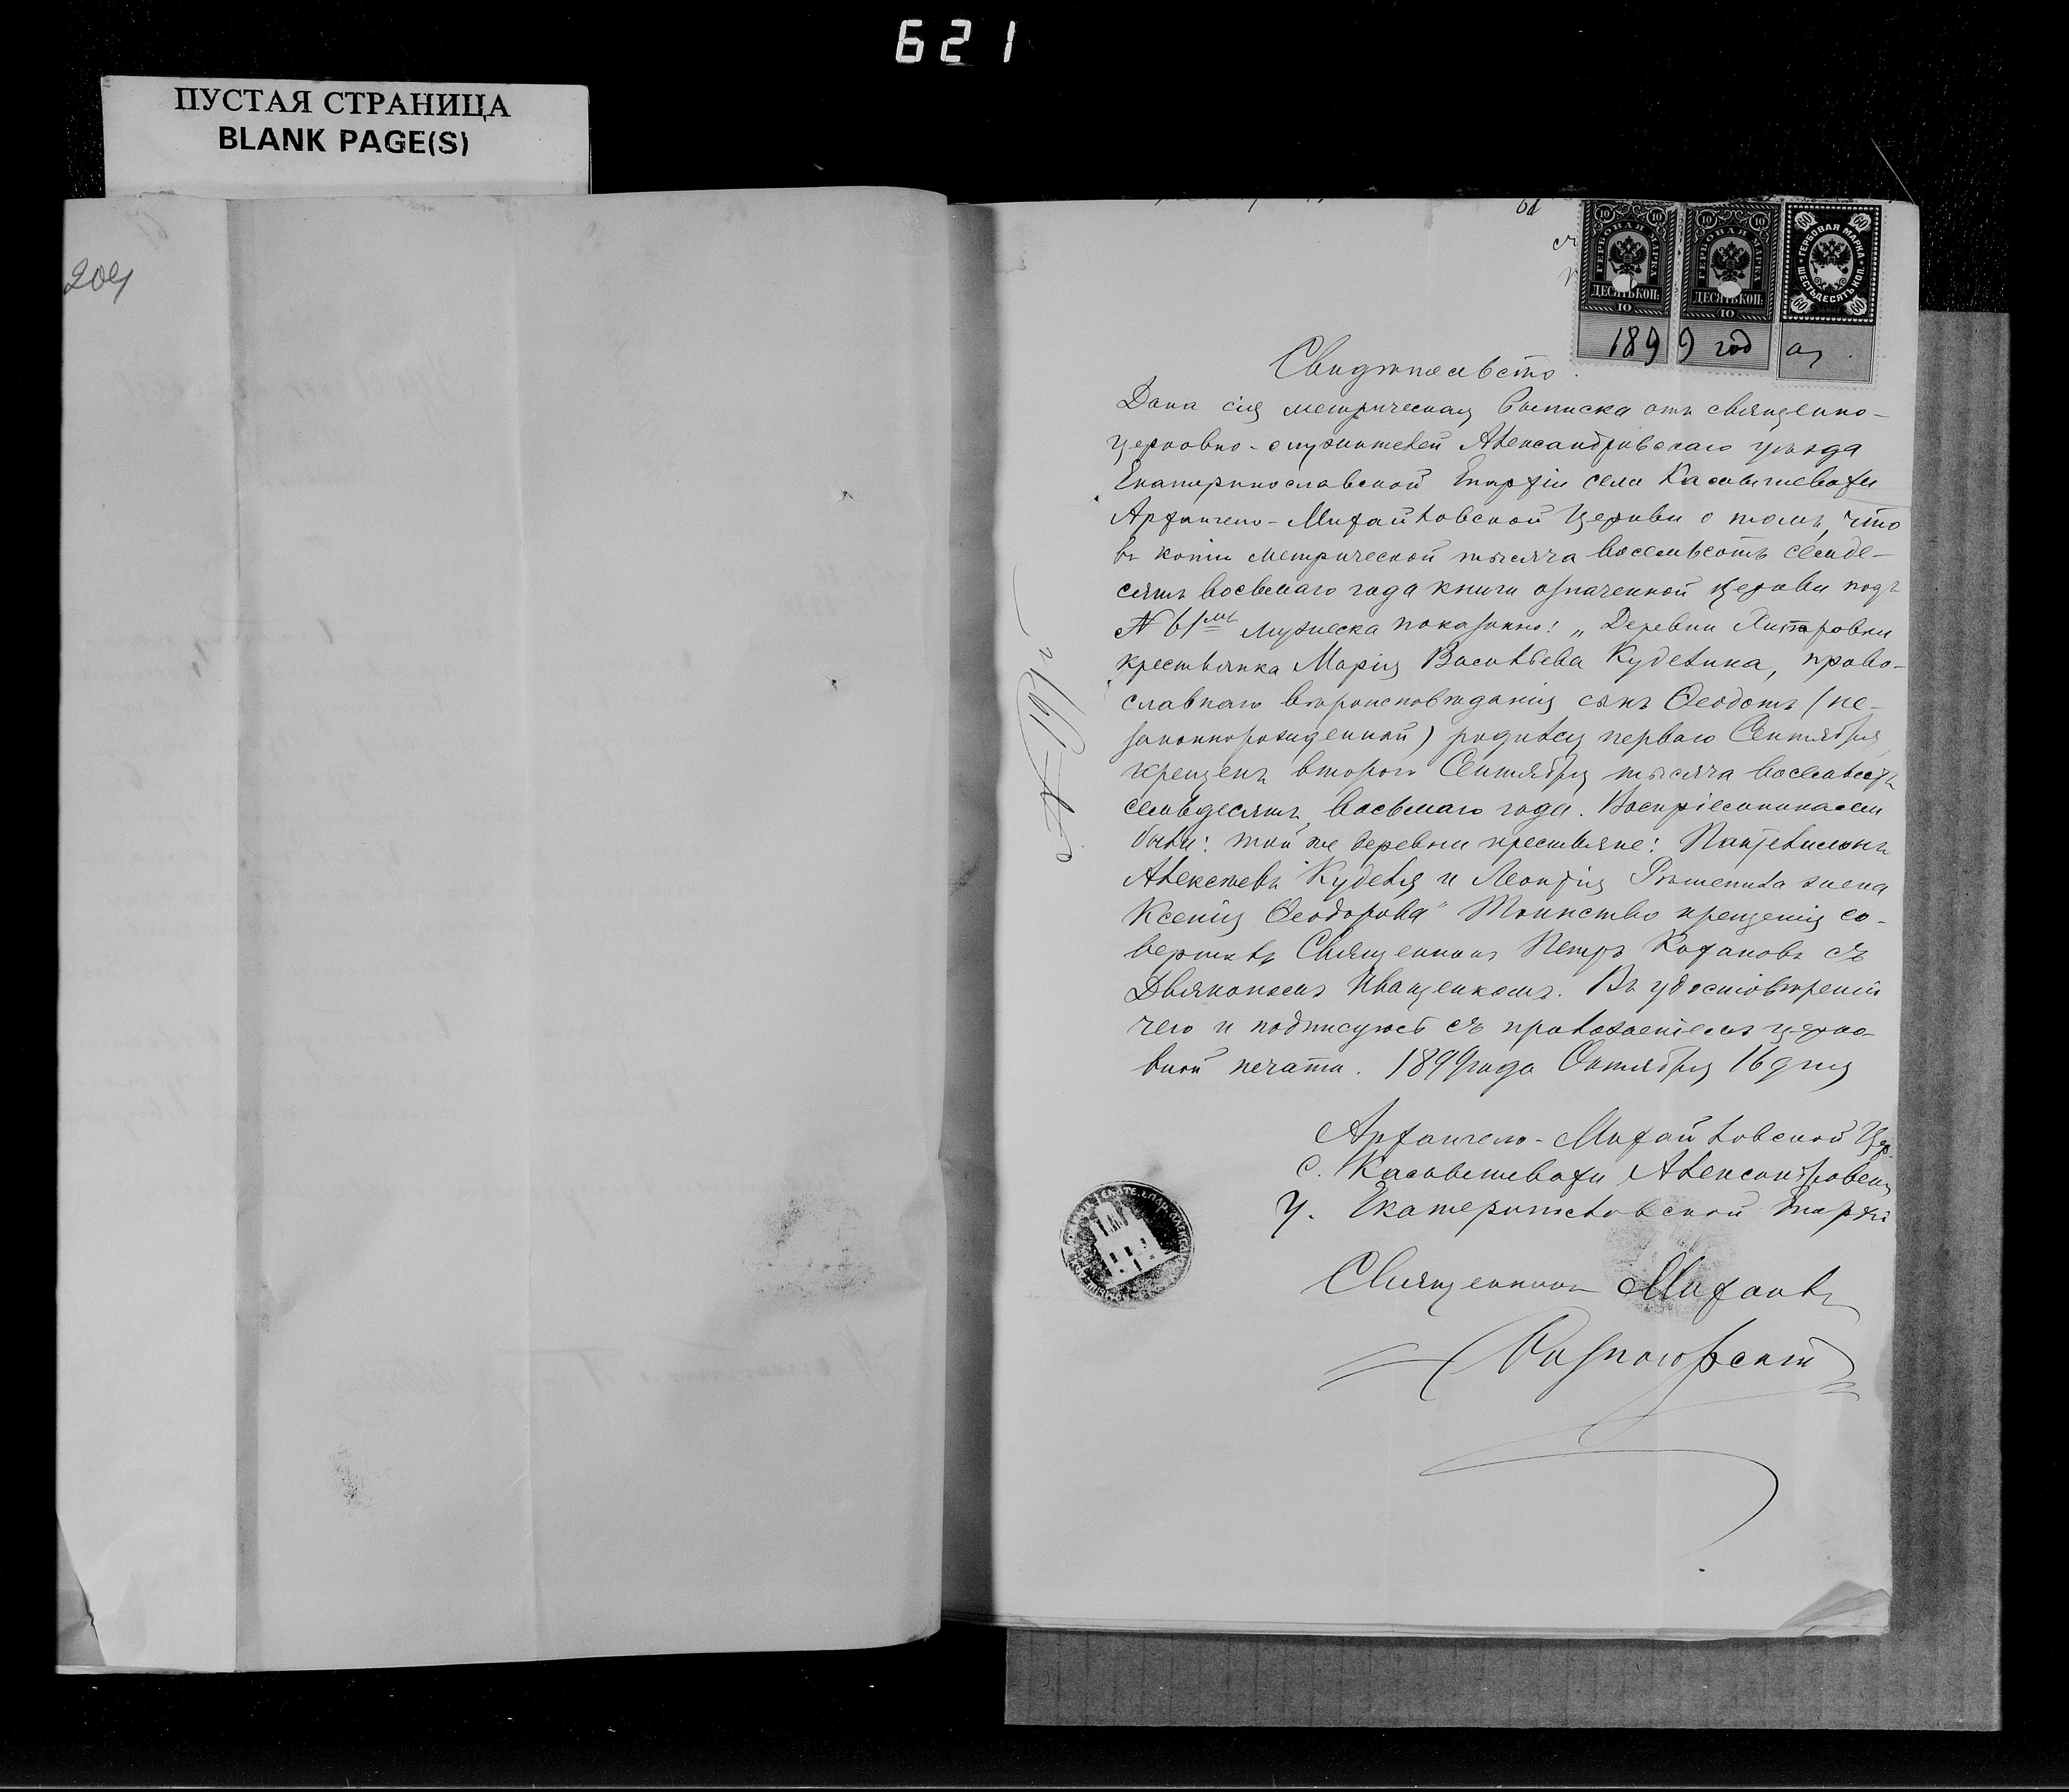 621
ПУСТАЯ СТРАНИЦА
BLANK PAGE(S)
204
ГЕРБОВАЯ МАРКА
ДЕСЯТЬ КОП.
10
ГЕРБОВАЯ МАРКА
ДЕСЯТЬ КОП.
10
ГЕРБОВАЯ МАРКА
ШЕСТЬДЕСЯТЪ КОП.
60
1899 года
Свидѣтельство.
Дана сія метрическая выписка отъ священно-
церковно-служителей Александровскаго уѣзда
Екатеринославской Епархіи села Камышевахи
Архангело-Михайловской Церкви о томъ, что
въ копіи метрической тысяча восемьсотъ семьде-
сятъ восьмаго года книги означенной церкви подъ
№ 61мъ мужеска показанно: „Деревни
крестьянка Марія Васильева Куделина, право-
славнаго вѣроисповѣданія сынъ Ѳеодотъ (не-
законнорожденной) родился перваго Сентября,
крещенъ втораго Сентября тысяча восемьсотъ
семьдесятъ восьмаго года. Воспріемниками
были: той же деревни крестьяне: Пантелимонъ
Алексѣевъ Куделя и Леонтія жена
Ксенія Ѳеодорова" Таинство крещенія со-
вершилъ Священникъ Петръ Кафановъ съ
Дьякономъ Иващенкомъ. Въ удостовѣреніи
чего и подписуюсь съ приложеніемъ церко-
вной печати. 1899 года Октября 16 дня
Архангело-Михайловской Цер.
с. Камышевахи Александровск.
у. Екатеринославской Епархіи
Священникъ Михаилъ